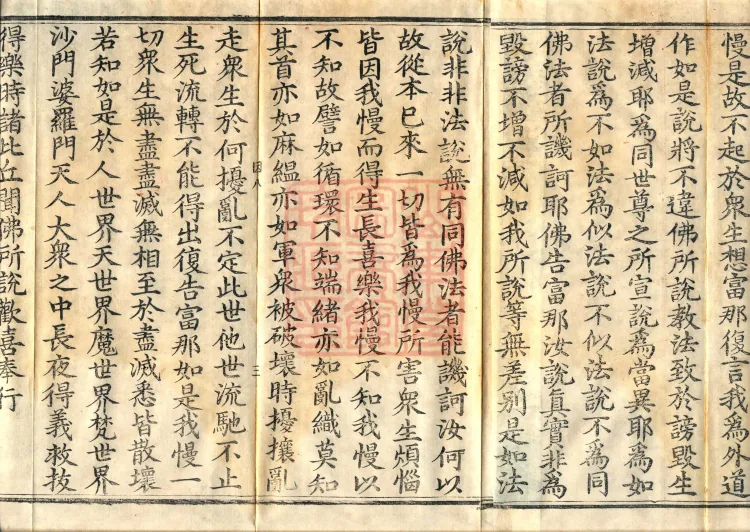 慢是故不起於衆生想富那復言我爲外道
作如是説將不違佛所説教法致於謗毀生
增減耶爲同世尊之所宣説爲當異耶爲如
法説爲不如法爲似法説不似法説不爲同
佛法者所譏訶耶佛告富那汝説真實非爲
毀謗不增不減如我所説等無差別是如法
説非非法説無有同佛法者能譏訶汝何以
故從本已來一切皆爲我慢所害衆生煩惱
皆因我慢而得生長喜樂我慢不知我慢以
不知故譬如循環不知端緒亦如亂織莫知
其首亦如麻緼亦如軍衆被破壞時擾攘亂
走衆生於何擾亂不定此世他世流馳不止
生死流轉不能得出復告富那如是我慢一
切衆生無盡盡滅無相至於盡滅悉皆散壞
若知如是於人世界天世界魔世界梵世界
沙門婆羅門天人大衆之中長夜得義救拔
得樂時諸比丘聞佛所説歡喜奉行
三